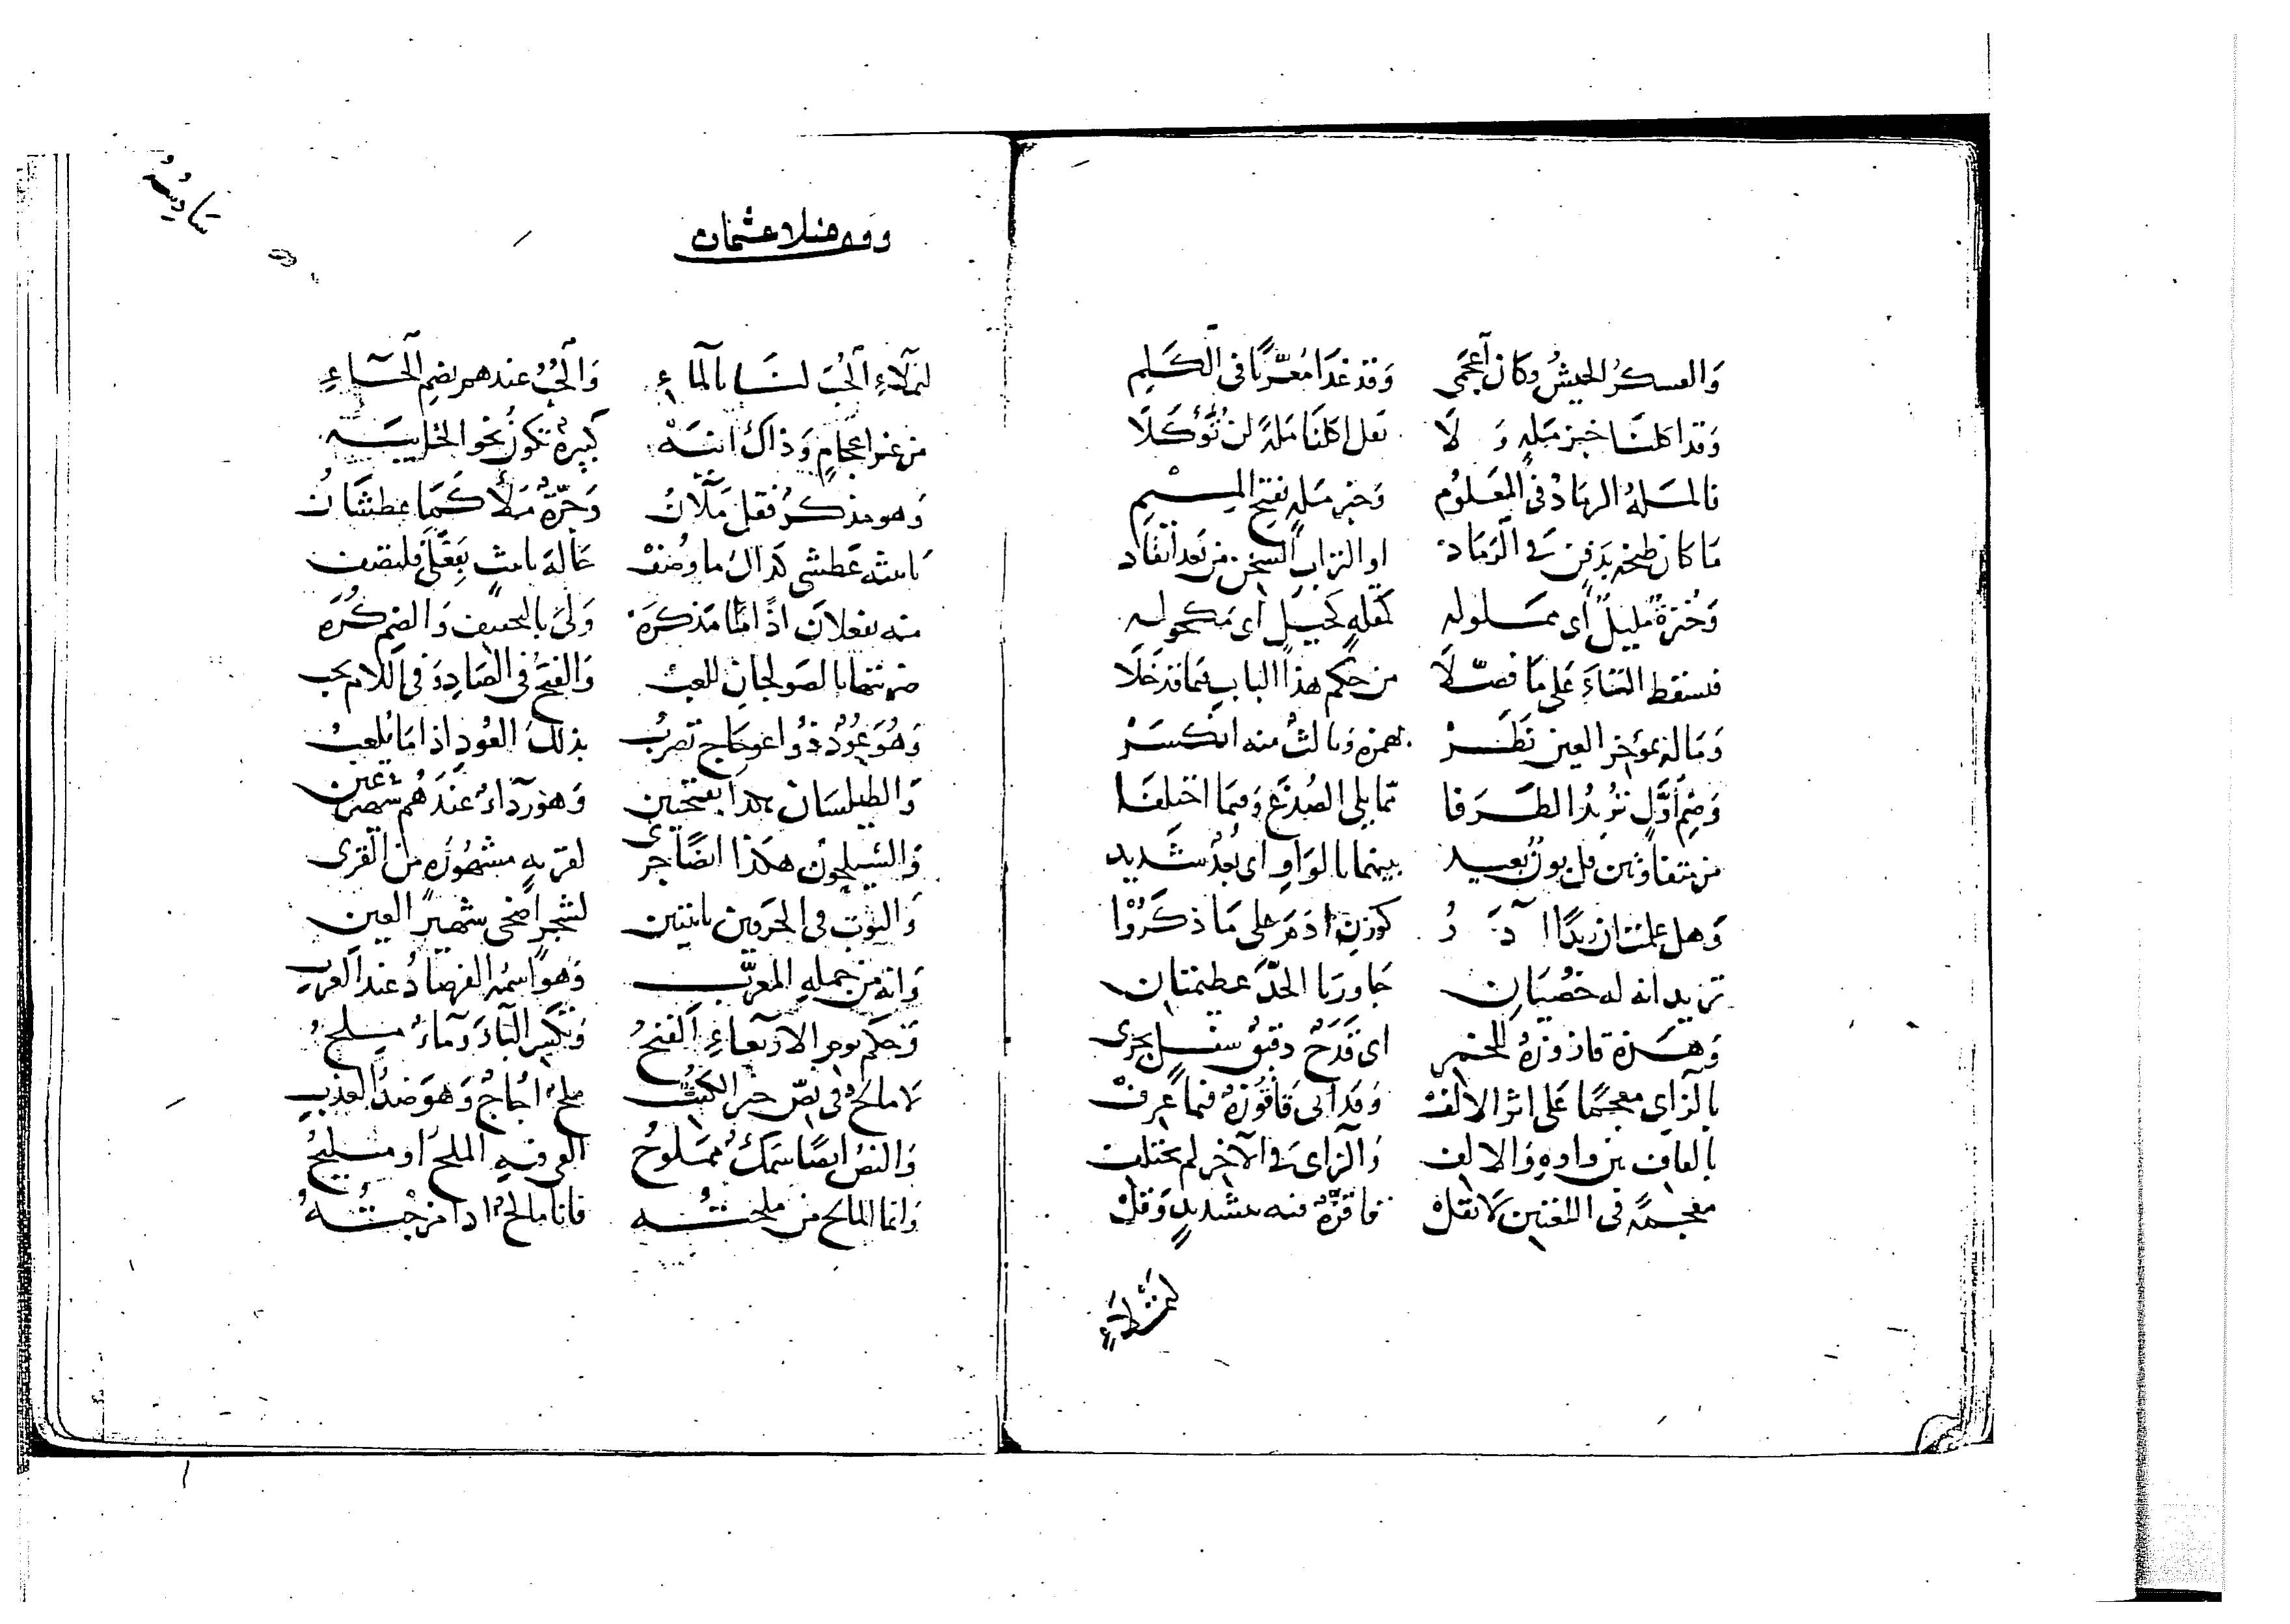 وَالعسكرُ الجيشُ وكان أعجمي وَقد غدَا مُعرّبًا في الكَلِم
وَقد اكلنَا خبز مَلةٍ وَلَا تقل اكلنَا مَلةً لن تُؤكَلَا
فالمَلةُ الرمَادُ في المعَلُوم وَخبز مَلةٍ بفتح الميم
مَا كان طبخه بدفنٍ في الرَمَاد او التراب السخن من بعد اتقاد
وَخُبزةٌ مَليلٌ أي مملوله كمقلةٍ كحيلٍ أي مكحوله
فتسقط التاءَ عَلى مَا فصّلَا من حكم هذا الباب فيما قد خَلَا
وَمَاله بمؤخر العين نَظَرْ بهمزه وثالثٌ منه انكسَرْ
وَضم أوَّلٍ تريدُ الطَرَفا ممّا يلي الصُدغ وَفيما اختلفَا
من متفاوتين قل بونٌ بعيد بينهما بالوَاو اي بُعدٌ شديد
وَهل علمت ان زيدًا آدَرُ كوزن ادمَ على مَا ذكَرُوا
تريد انه له خصيَان جَاورتا الحدَّ عظيمتان
وَهذه قازوزةٌ للخمر اي قَدَحٌ دقيقُ سفلٍ يجري
بالزاي معجمًا عَلى اثر الالف وَقد اتى قاقوزةٌ فيما عُرف
بالقاف بين واوه وَالالف وَالزاي في الآخر لم يختلف
معجمةً في اللغتين لَا تقل قاقزّةٌ فيه بتشديدٍ وَقل
لنملاءِ
وقف منلا عثمان
لنملَاءِ الجُبّ لنَا بالماءِ وَالحُبُّ عندهم بضم الحَاءِ
من غير اعجامٍ وَذاك انيَهْ كبيرةٌ تكون نحو الخابيَه
وَهو مذكرٌ فقل مَلآنُ وَجَرّةٌ مَلأَى كمَا عطشَانُ
تانيثه عَطشى كذاك ما وُصِفْ مَا له تانيثٍ بفَعْلَى فلتصف
منه بفعلَان اذا مَا ذكرَهْ وَلي بالتخفيف وَالضم كُرَه
ضربتها بالصَولجان للعب وَالفتح في الصَاد وَفي اللام يجب
وَهُوَ عُودٌ ذُو اعوجَاجٍ تضربُ بذلك العُود اذا مَا تلعبُ
وَالطيلسَان هكذا بفتحتين وَهو رداءٌ عندَهم شهير عين
وَالسَيلحُون هكذا ايضًا جرى لقريةٍ مشهُورَةٍ من القرى
وَالتوت في الحرفين تاءَين لشجرٍ اضحى شهيرَ العين
وَانه من جملةِ المعرَّب وَهو اسمه الفرصَادُ عند العرب
وَحكم يوم الاربعاءِ الفتحُ وَتكسر البَاءَ وَماءٌ مِلحُ
لَا مالحٌ في نصّ خير الكتب ملحٌ اُجاجٌ وَهوَ ضدُّ العذب
وَالنصُ ايضًا سَمكٌ مَملوحُ القى فيه الملحُ او مليحُ
وَانما المالح من ملحتُه فانا مالحٌ اذا مزجتُهُ